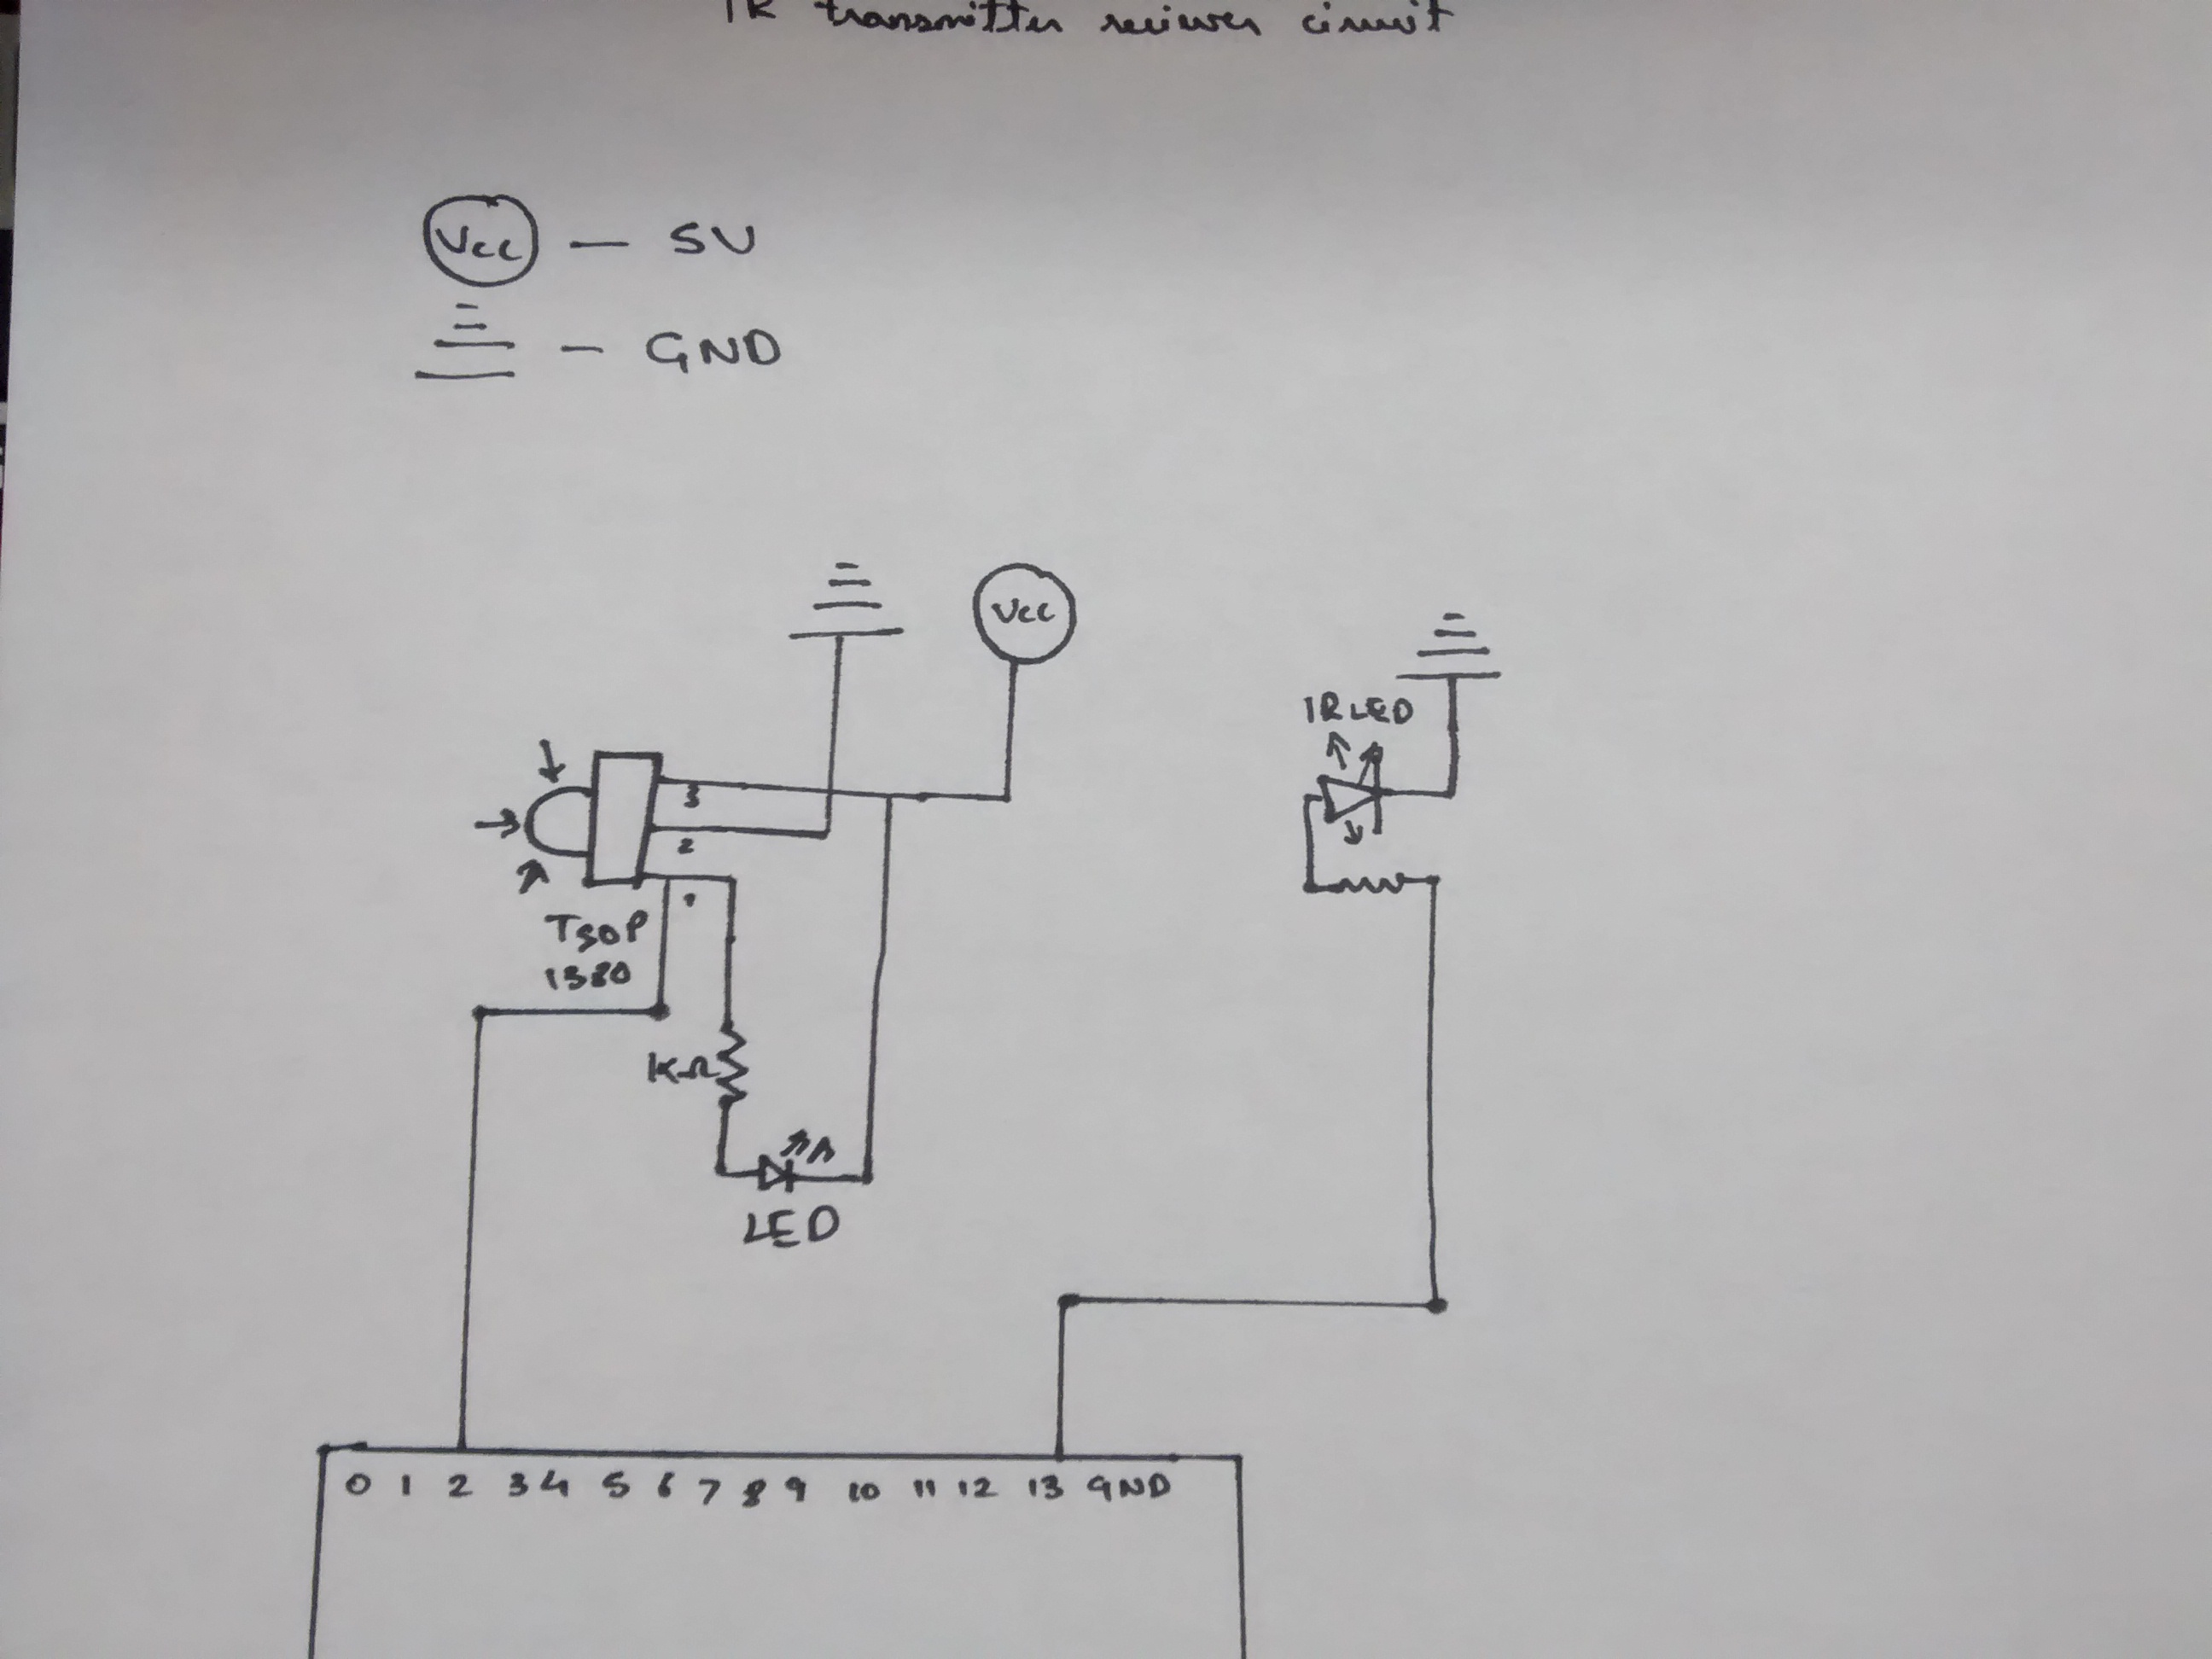 IR transmitter reciever circuit
Vcc — 5V
— GND
Vcc
IR LED
3
2
1
TSOP
1380
KΩ
LED
0 1 2 3 4 5 6 7 8 9 10 11 12 13 GND